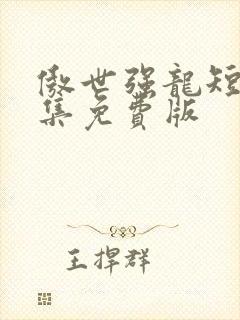 傲世强龍短
集免費版
王捍群